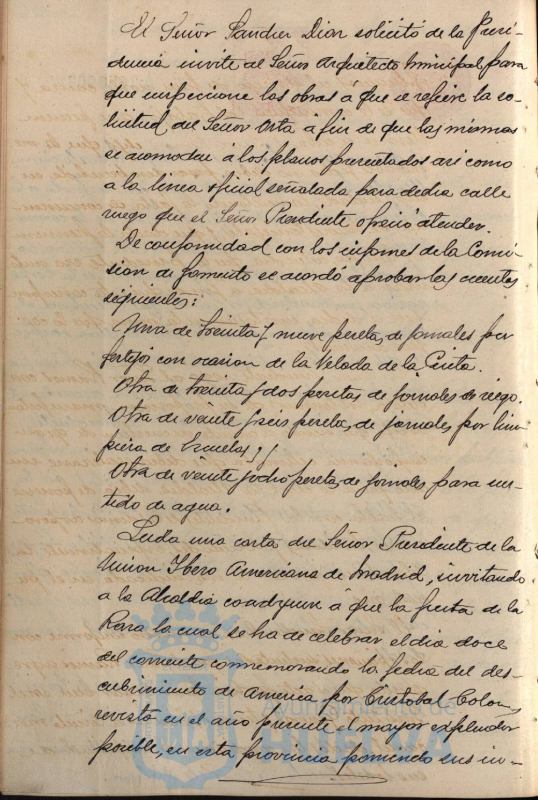 El Señor Sanchez Dion solicitó de la Presi-
dencia invite al Señor Arquitecto Municipal, para
que inspeccione las obras á que se refiere la so-
licitud del Señor Orta á fin de que las mismas
se acomoden á los planos presentados asi como
á la linea oficial señalada para dicha calle
ruego que el Señor Presidente ofreció atender.
De conformidad con los informes de la Comi-
sion de fomento se acordó aprobar las cuentas
siguientes:
Una de treinta y nueve pesetas, de jornales por
festejos con ocasion de la Velada de la Cinta.
Otra de treinta y dos pesetas de jornales de riego.
Otra de veinte y seis pesetas, de jornales por lim-
pieza de Escuelas, y
Otra de veinte y ocho pesetas, de jornales para sur-
tido de agua.
Leida una carta del Señor Presidente de la
Union Ibero Americana de Madrid, invitando
a la Alcaldia coadyuve á que la fiesta de la
Raza la cual se ha de celebrar el dia doce
del corriente conmemorando la fecha del des-
cubrimiento de America por Cristobal Colon,
revista en el año presente el mayor explendor
posible, en esta provincia poniendo sus in-
Ayuntamiento de
HUELVA